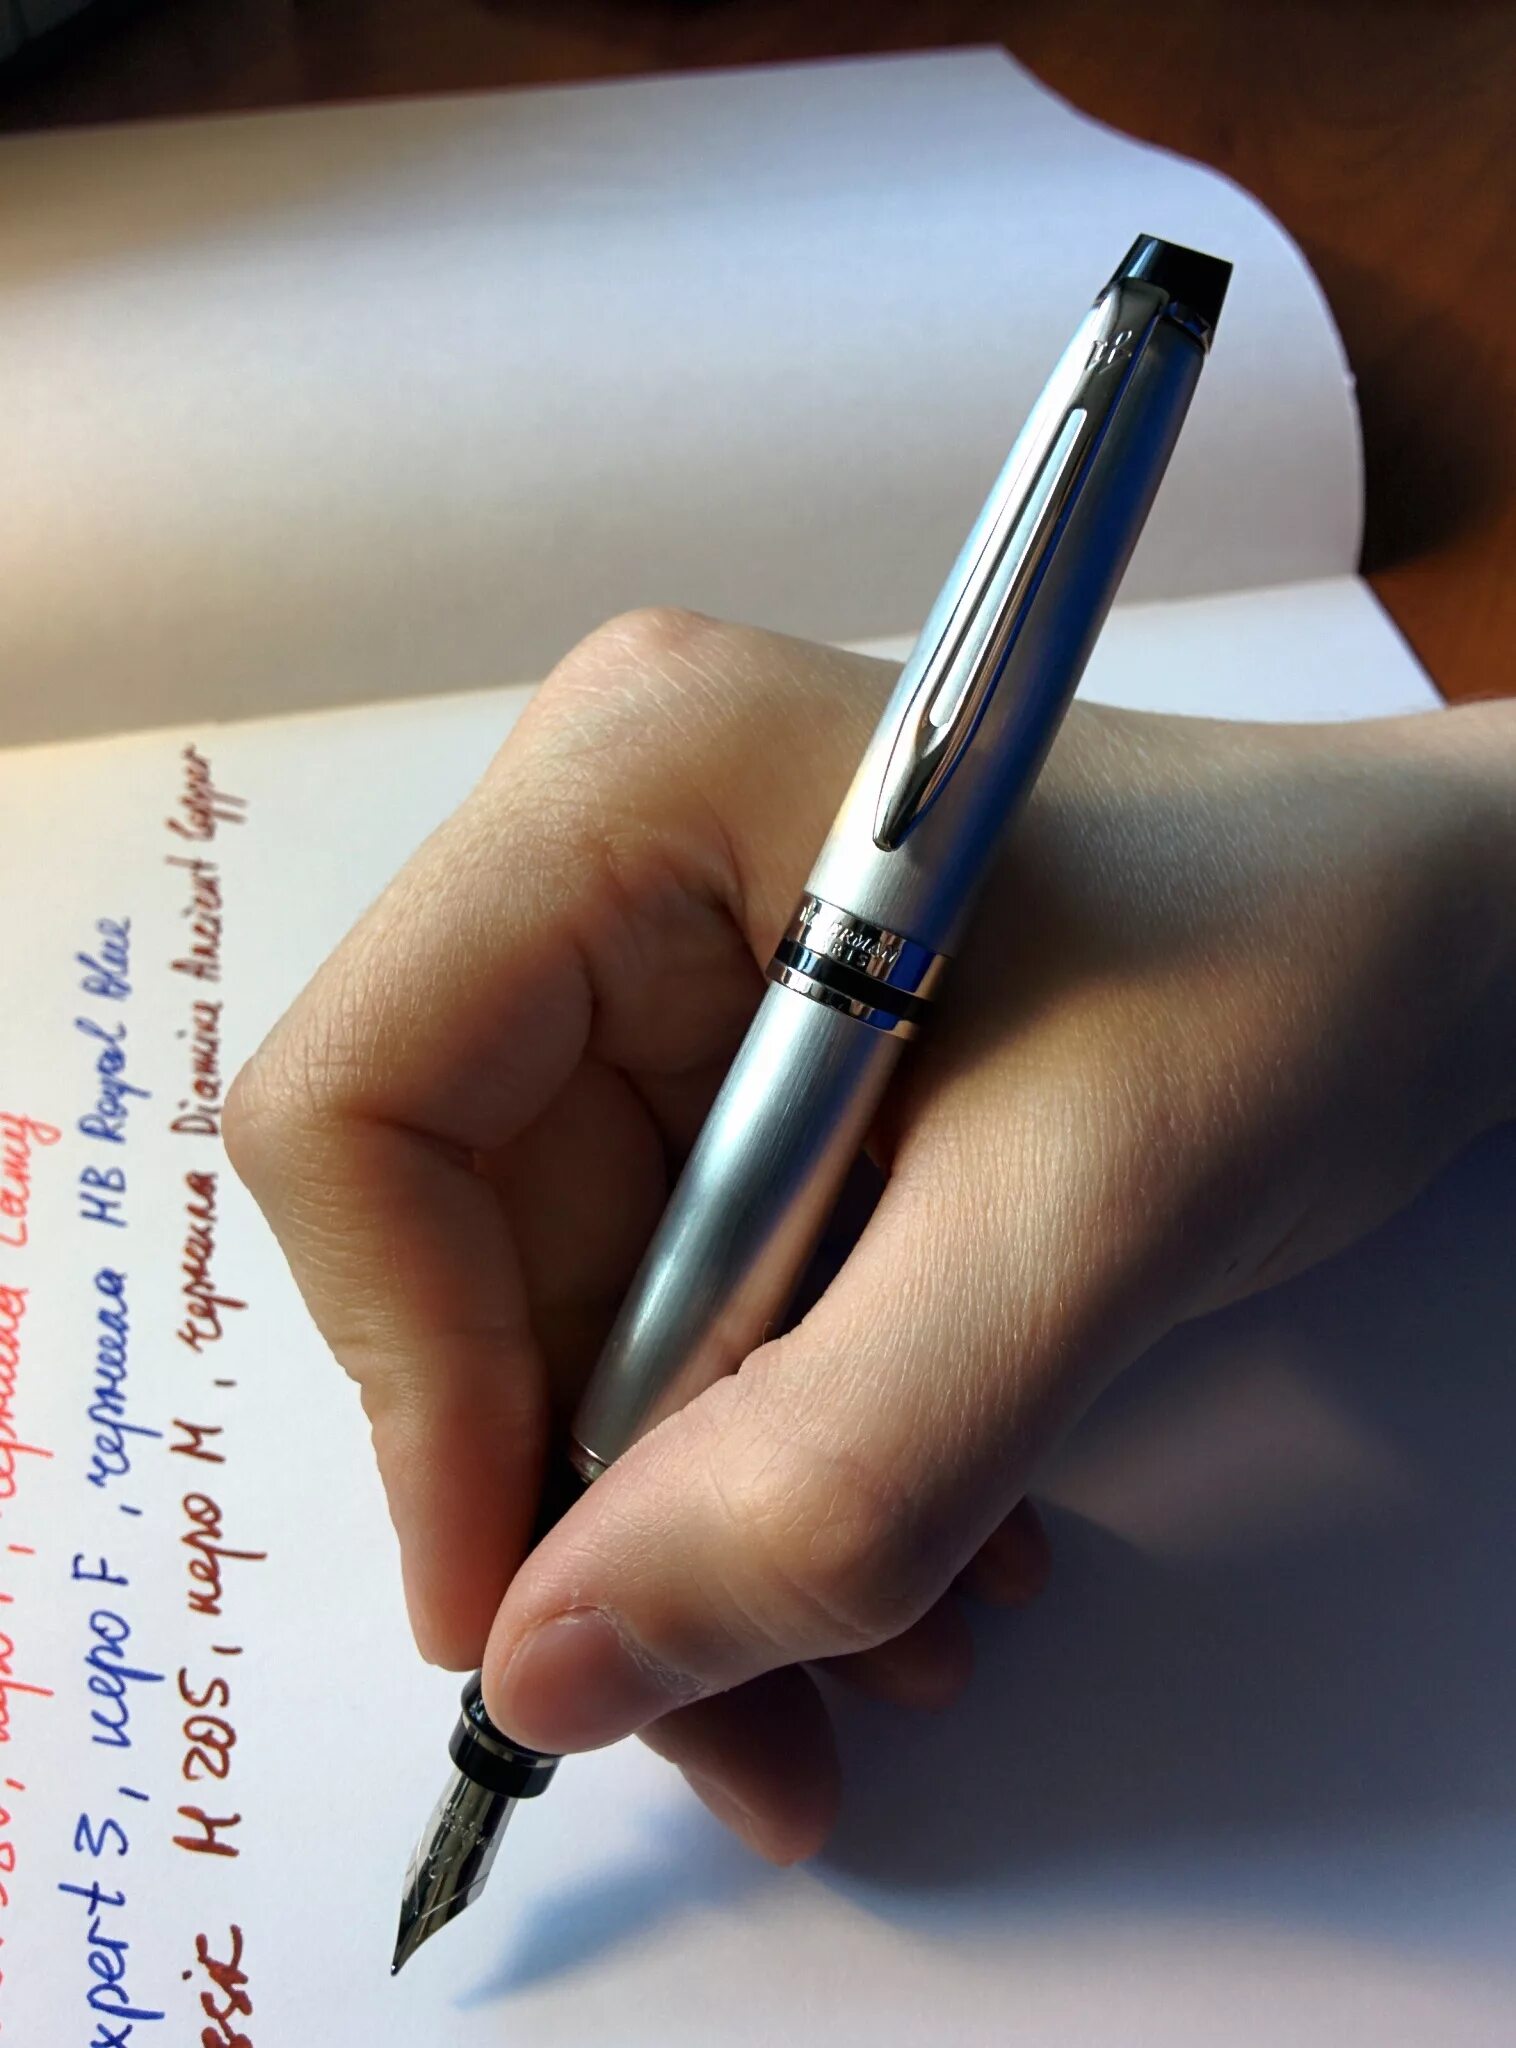 чернила Lamy
xpert 3, перо F, чернила MB Royal Blue
ssic M 205, перо M, чернила Diamine Ancient Copper
WATERMAN
PARIS